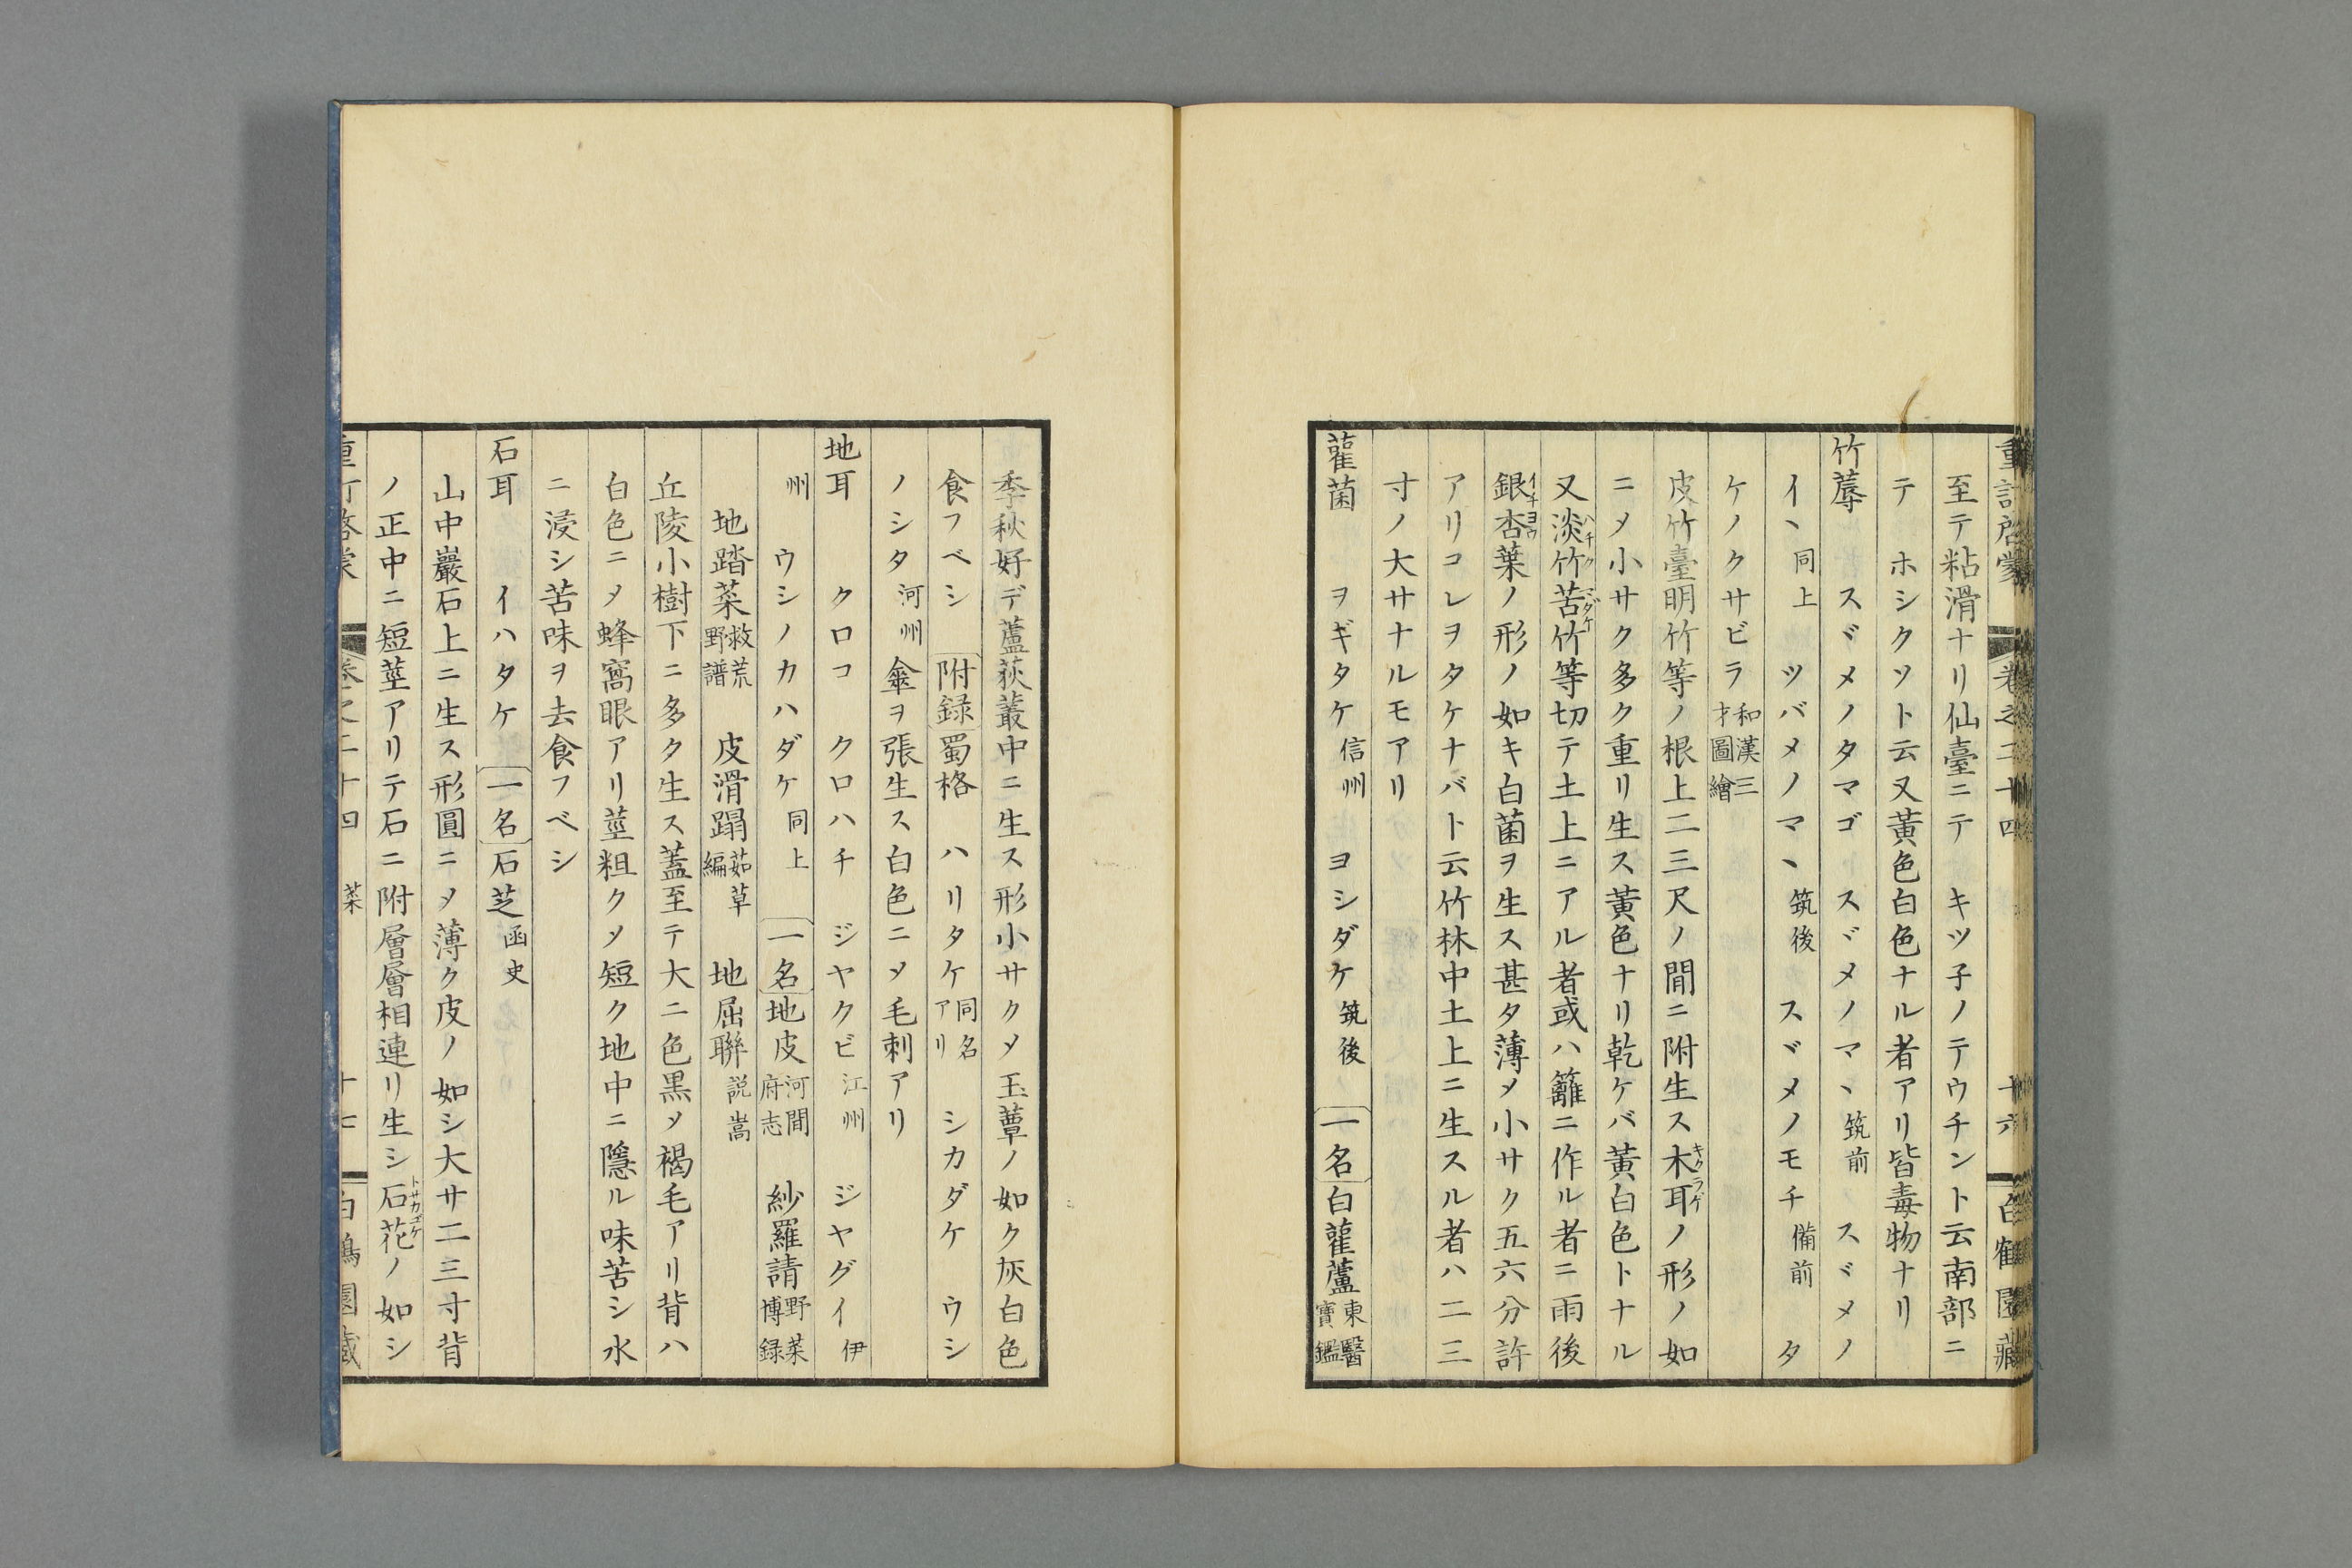 重訂啓蒙 卷之二十四 十六 白鶴園藏
至テ粘滑ナリ仙臺ニテ キツ子ノテウチント云南部ニ
テ ホシクソト云又黃色白色ナル者アリ皆毒物ナリ
竹蓐 スヾメノタマゴ スヾメノマヽ筑前 スヾメノ
イヽ同上 ツバメノマヽ筑後 スヾメノモチ備前 タ
ケノクサビラ和漢三才圖繪
皮竹臺明竹等ノ根上二三尺ノ間ニ附生ス木耳キクラゲノ形ノ如
ニメ小サク多ク重リ生ス黃色ナリ乾ケバ黃白色トナル
又淡竹ハチク苦竹マダケ等切テ土上ニアル者或ハ籬ニ作ル者ニ雨後
銀杏イチヨウ葉ノ形ノ如キ白菌ヲ生ス甚タ薄メ小サク五六分許
アリコレヲタケナバト云竹林中土上ニ生スル者ハ二三
寸ノ大サナルモアリ
雚菌 ヲギタケ信州 ヨシダケ筑後 一名白雚蘆東醫寶鑑
季秋好デ蘆荻叢中ニ生ス形小サクメ玉蕈ノ如ク灰白色
食フベシ 附録蜀格 ハリタケ同名アリ シカダケ ウシ
ノシタ河州 傘ヲ張生ス白色ニメ毛刺アリ
地耳 クロコ クロハチ ジヤクビ江州 ジヤグイ伊
州 ウシノカハダケ同上 一名地皮河間府志 紗羅請野菜博録
地踏菜救荒野譜 皮滑蹋茹草編 地屈聯説嵩
丘陵小樹下ニ多タ生ス蓋至テ大ニ色黒メ褐毛アリ背ハ
白色ニメ蜂窩眼アリ莖粗クメ短ク地中ニ隱ル味苦シ水
ニ浸シ苦味ヲ去食フベシ
石耳 イハタケ 一名石芝函史
山中巖石上ニ生ス形圓ニメ薄ク皮ノ如シ大サ二三寸背
ノ正中ニ短莖アリテ石ニ附層層相連リ生シ石花トサカゴケノ如シ
卷之二十四 菜 十七